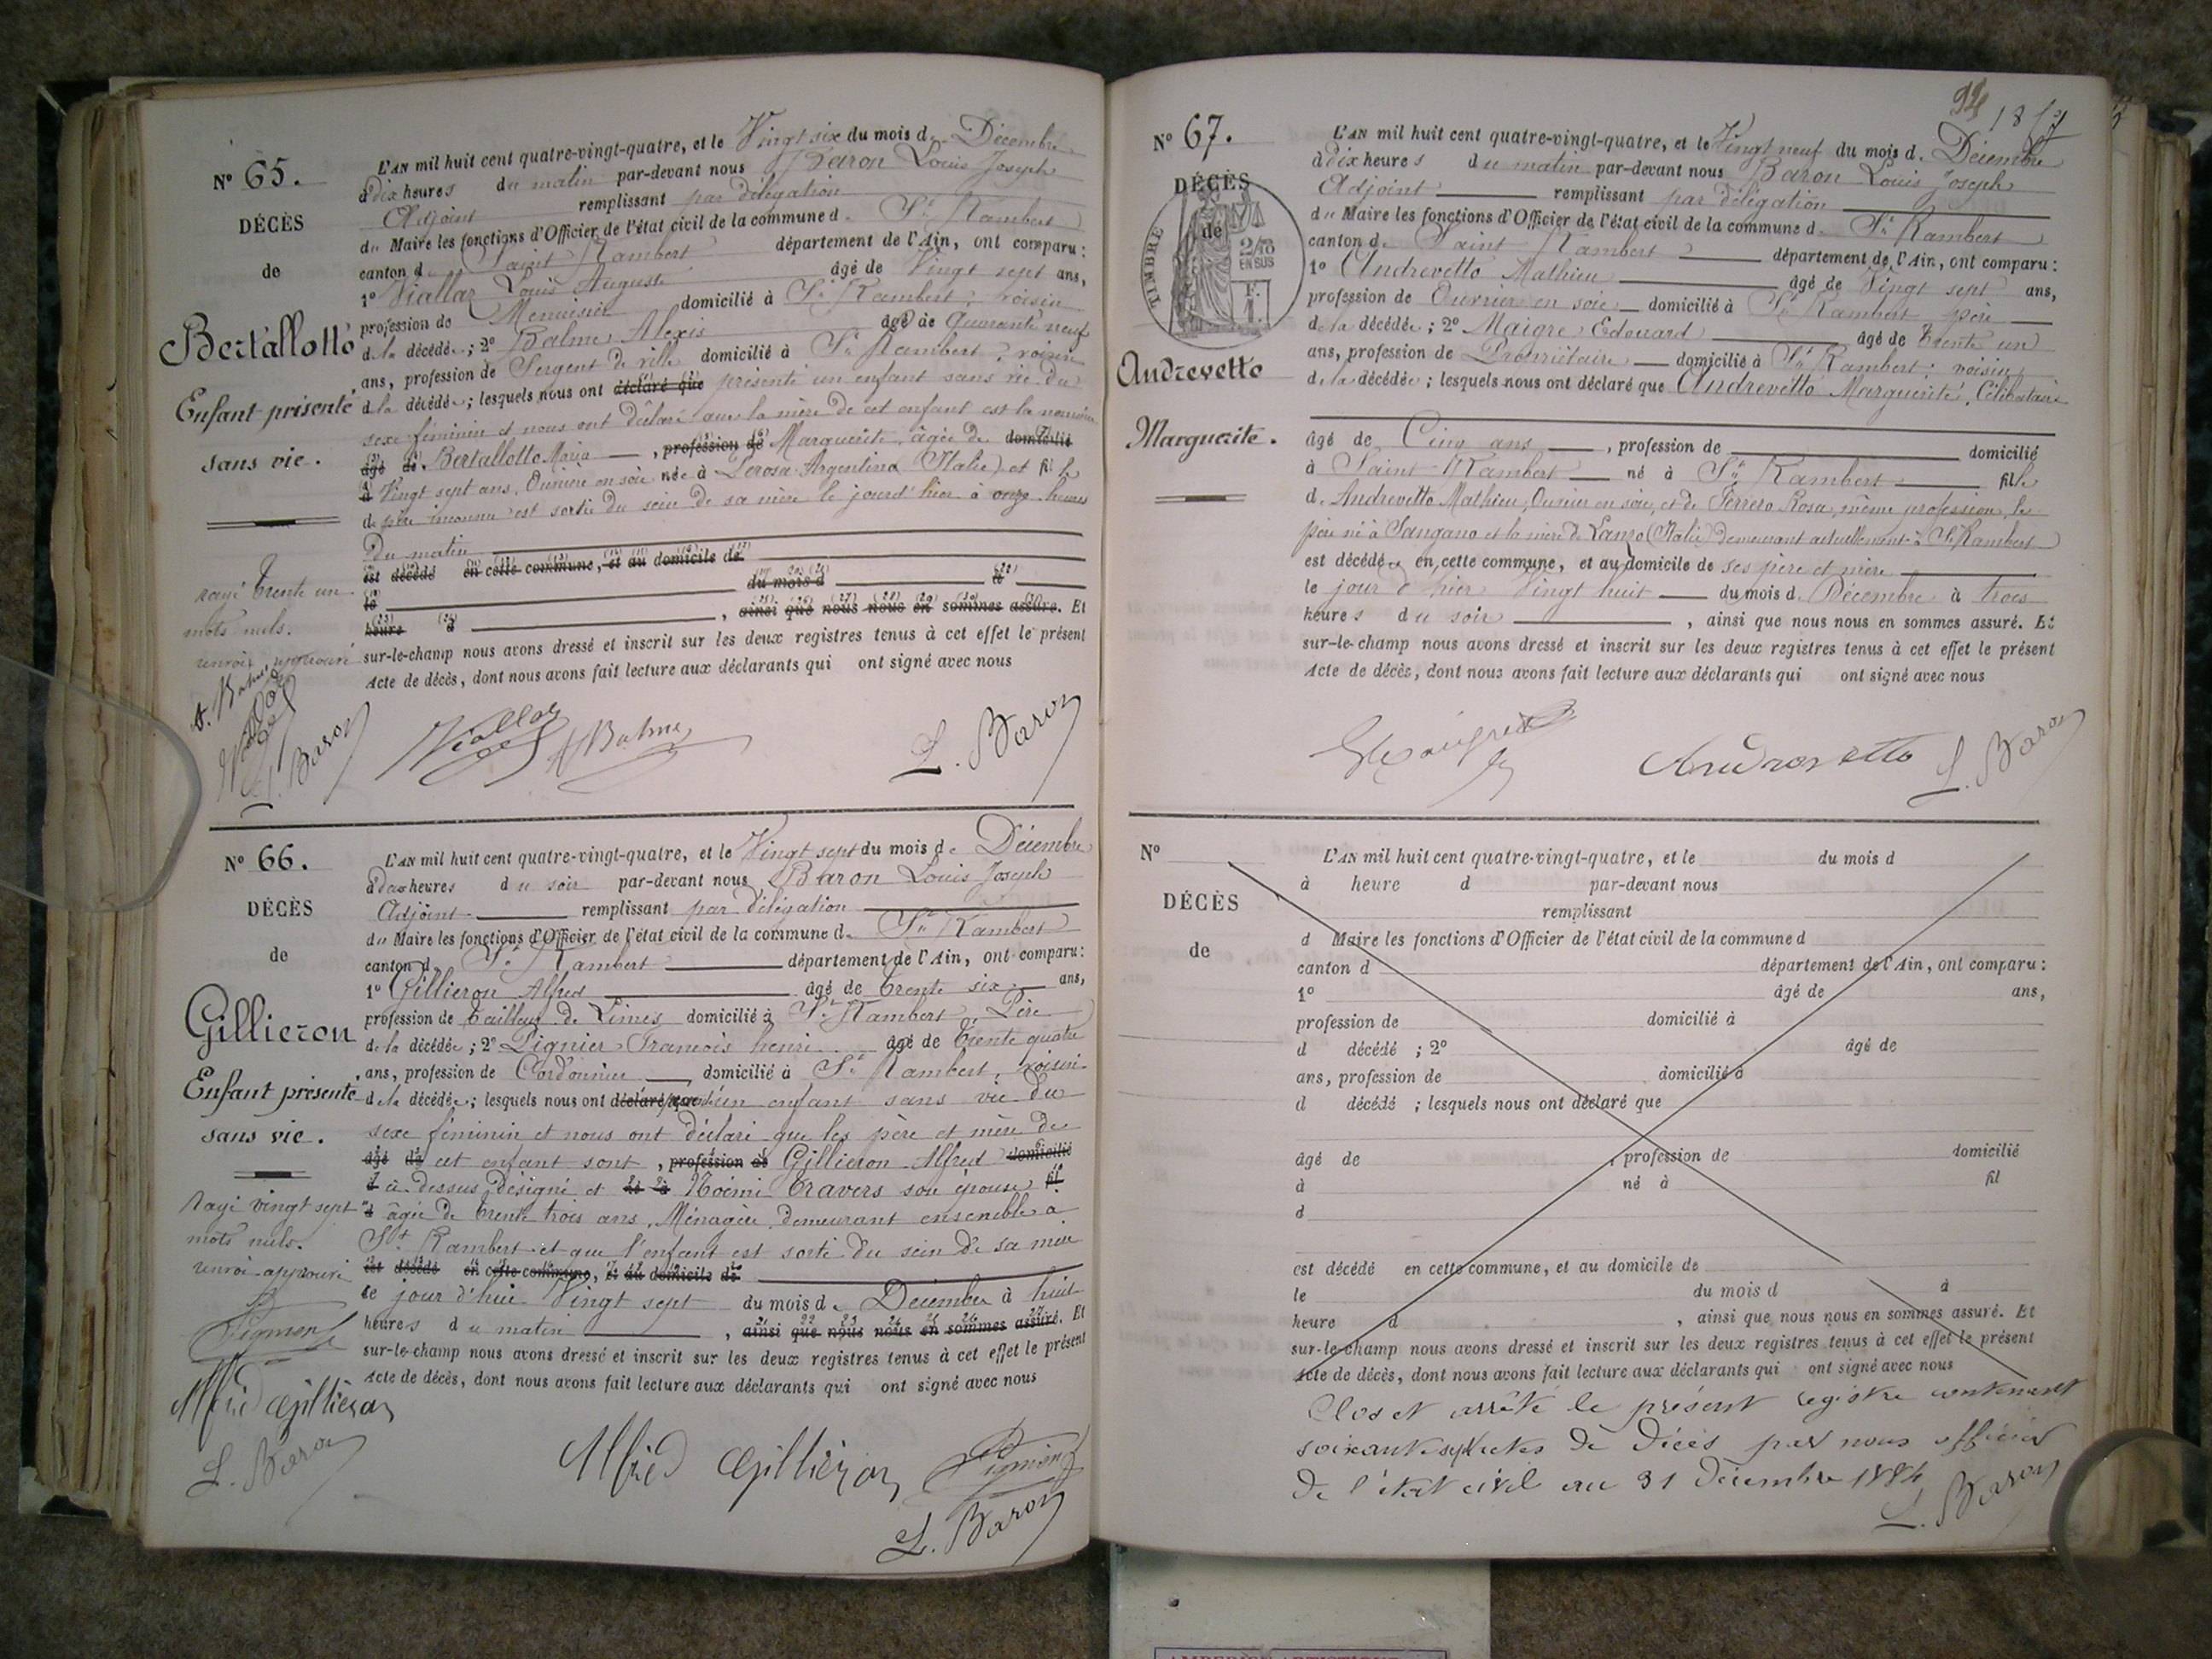 N° 65.
DÉCÈS
de
Bertallotto
Enfant présenté
sans vie.
rayé trente un
mots nuls.
renvoi approuvé
A. Balme
Viallaz
L. Baron
L'AN mil huit cent quatre-vingt-quatre, et le Vingt six du mois de Décembre
à dix heures du matin par-devant nous Baron Louis Joseph
Adjoint remplissant par délégation
du Maire les fonctions d'Officier de l'état civil de la commune de St Rambert
canton de Saint Rambert département de l'Ain, ont comparu :
1° Viallaz Louis Auguste âgé de Vingt sept ans,
profession de Menuisier domicilié à St Rambert, voisin
de la décédée ; 2° Balme Alexis âgé de Quarante neuf
ans, profession de Sergent de ville domicilié à St Rambert, voisin
de la décédée ; lesquels nous ont déclaré que présenté un enfant sans vie du
sexe féminin et nous ont déclaré que la mère de cet enfant est la nommée
âgé de Bertallotto Maria , profession de Marguerite, âgée de domicilié
à Vingt sept ans, Ouvrière en soie née à Perosa Argentina (Italie) et fille
de père inconnu est sortie du sein de sa mère le jour d'hier à onze heures
du matin
est décédé en cette commune, et au domicile de
le du mois d à
heure d , ainsi que nous nous en sommes assuré. Et
sur-le-champ nous avons dressé et inscrit sur les deux registres tenus à cet effet le présent
Acte de décès, dont nous avons fait lecture aux déclarants qui ont signé avec nous
Viallaz A Balme L. Baron
N° 66.
DÉCÈS
de
Gillieron
Enfant présenté
sans vie.
Rayé vingt sept
mots nuls.
renvoi approuvé
Alfred Gilliéron
L. Baron
L'AN mil huit cent quatre-vingt-quatre, et le Vingt sept du mois de Décembre
à deux heures du soir par-devant nous Baron Louis Joseph
Adjoint remplissant par délégation
du Maire les fonctions d'Officier de l'état civil de la commune de St Rambert
canton de St Rambert département de l'Ain, ont comparu :
1° Gillieron Alfred âgé de trente six ans,
profession de tailleur de Limes domicilié à St Rambert, Père
de la décédée ; 2° Pignier François henri âgé de trente quatre
ans, profession de Cordonnier domicilié à St Rambert, voisin
de la décédée ; lesquels nous ont déclaré que présenté un enfant sans vie du
sexe féminin et nous ont déclaré que les père et mère de
âgé de cet enfant sont , profession de Gillieron Alfred domicilié
à ci-dessus désigné et né à Noémi Travers son épouse fil
d âgée de trente trois ans, Ménagère, demeurant ensemble à
St Rambert et que l'enfant est sorti du sein de sa mère
est décédé en cette commune, et au domicile de
le jour d'hui Vingt sept du mois de Décembre à huit
heures du matin , ainsi que nous nous en sommes assuré. Et
sur-le-champ nous avons dressé et inscrit sur les deux registres tenus à cet effet le présent
Acte de décès, dont nous avons fait lecture aux déclarants qui ont signé avec nous
Alfred Gilliéron
L. Baron
N° 67.
DÉCÈS
de
TIMBRE
2/10
EN SUS
Andrevetto
Marguerite.
L'AN mil huit cent quatre-vingt-quatre, et le Vingt neuf du mois de Décembre
à dix heures du matin par-devant nous Baron Louis Joseph
Adjoint remplissant par délégation
du Maire les fonctions d'Officier de l'état civil de la commune de St Rambert
canton de Saint Rambert département de l'Ain, ont comparu :
1° Andrevetto Mathieu âgé de Vingt sept ans,
profession de Ouvrier en soie domicilié à St Rambert père
de la décédée ; 2° Maigre Edouard âgé de trente un
ans, profession de Propriétaire domicilié à St Rambert, voisin
de la décédée ; lesquels nous ont déclaré que Andrevetto Marguerite, Célibataire
âgé de Cinq ans , profession de domicilié
à Saint Rambert né à St Rambert fille
de Andrevetto Mathieu, Ouvrier en soie, et de Ferrero Rosa, même profession, le
père né à Sangano et la mère de Lanzo (Italie) demeurant actuellement à St Rambert
est décédée en cette commune, et au domicile de ses père et mère
le jour d'hier Vingt huit du mois de Décembre à trois
heures du soir , ainsi que nous nous en sommes assuré. Et
sur-le-champ nous avons dressé et inscrit sur les deux registres tenus à cet effet le présent
Acte de décès, dont nous avons fait lecture aux déclarants qui ont signé avec nous
Andrevetto L. Baron
N°
DÉCÈS
de
L'AN mil huit cent quatre-vingt-quatre, et le du mois d
à heure d par-devant nous
remplissant
d Maire les fonctions d'Officier de l'état civil de la commune d
canton d département de l'Ain, ont comparu :
1° âgé de ans,
profession de domicilié à
d décédé ; 2° âgé de
ans, profession de domicilié à
d décédé ; lesquels nous ont déclaré que
âgé de , profession de domicilié
à né à fil
d
est décédé en cette commune, et au domicile de
le du mois d à
heure d , ainsi que nous nous en sommes assuré. Et
sur-le-champ nous avons dressé et inscrit sur les deux registres tenus à cet effet le présent
Acte de décès, dont nous avons fait lecture aux déclarants qui ont signé avec nous
Clos et arrêté le présent registre contenant
soixante sept actes de Décès par nous officier
de l'état civil au 31 Décembre 1884
L. Baron